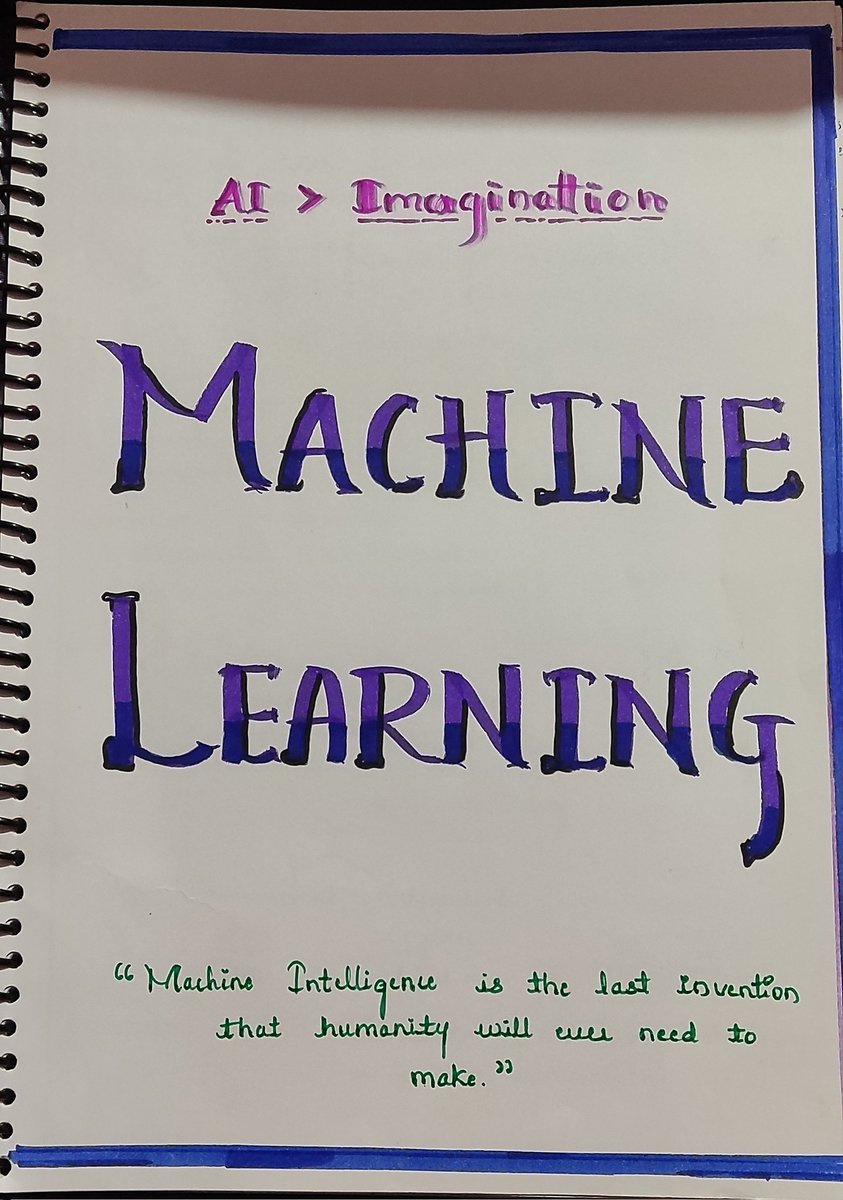 AI > Imagination
MACHINE
LEARNING
“Machine Intelligence is the last invention
that humanity will ever need to
make.”